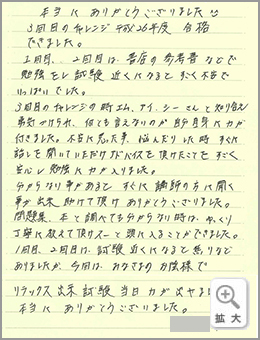 本当に ありがとうございました
3回目のチャレンジ 平成26年度 合格
できました。
1回目、2回目は 書店の参考書などで
勉強をし試験 近くになると すごく不安で
いっぱいでした。
3回目のチャレンジの時エム、アイ、シーさんと知り合え
勇気づけられ、何でも言えないのが 自分に力が
付きました。不安に思った事、悩んだりした時 すぐに
話しを聞いていただけアドバイスを頂けたことを すごく
安心し勉強に力が入りました。
分からない事があると すぐに 講師の方に聞く
事が出来 助けて頂け ありがとうございました。
問題集、本で調べても分からない時は、ゆっくり
丁寧に教えて頂けスーと頭に入ることができました。
1回目、2回目は試験 近くになると 焦りなど
ありましたが、今回は みなさまのお陰様で
リラックス出来 試験 当日 力が出せました。
本当に ありがとうございました。
拡大